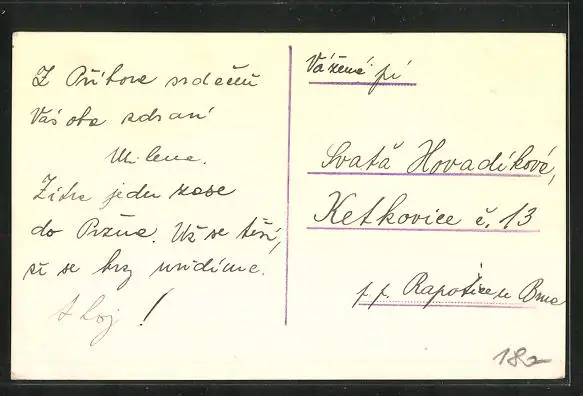 Z Příbora srdečně
Vás oba zdraví
Milena.
Zítra jedu zase
do Brna. Už se těší,
že se brzy uvidíme.
Ahoj!
Vážená pí
Svată Hovadíková,
Ketkovice č. 13
p.p. Rapotice u Brna
180